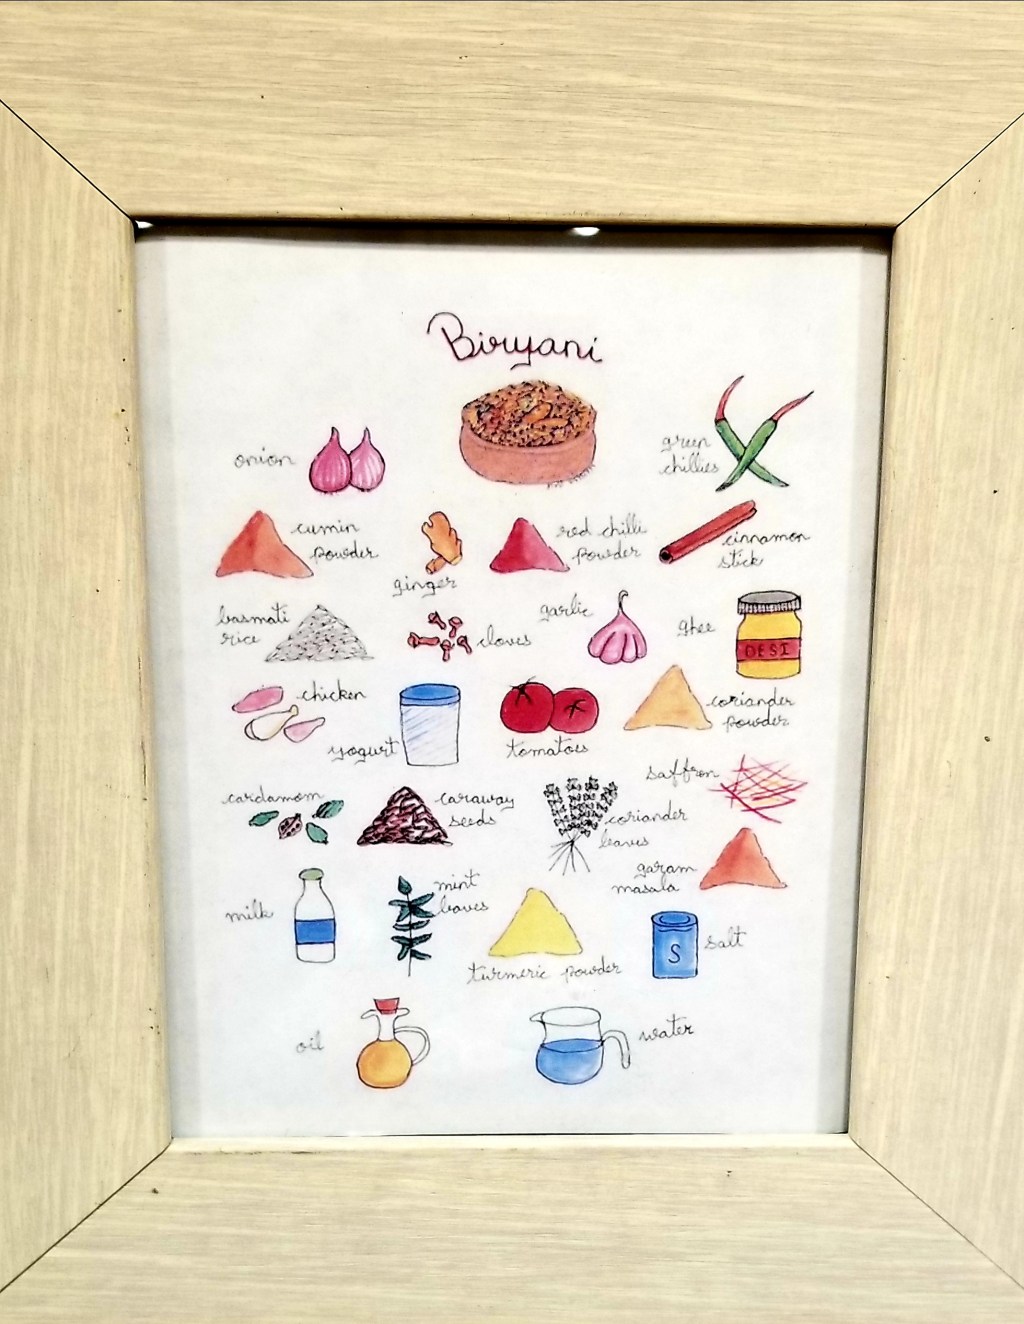 Biryani
onion
green
chillies
cumin
powder
ginger
red chilli
powder
cinnamon
stick
basmati
rice
cloves
garlic
ghee
DESI
chicken
yogurt
tomatoes
coriander
powder
cardamom
caraway
seeds
coriander
leaves
saffron
garam
masala
milk
mint
leaves
turmeric powder
S
salt
oil
water